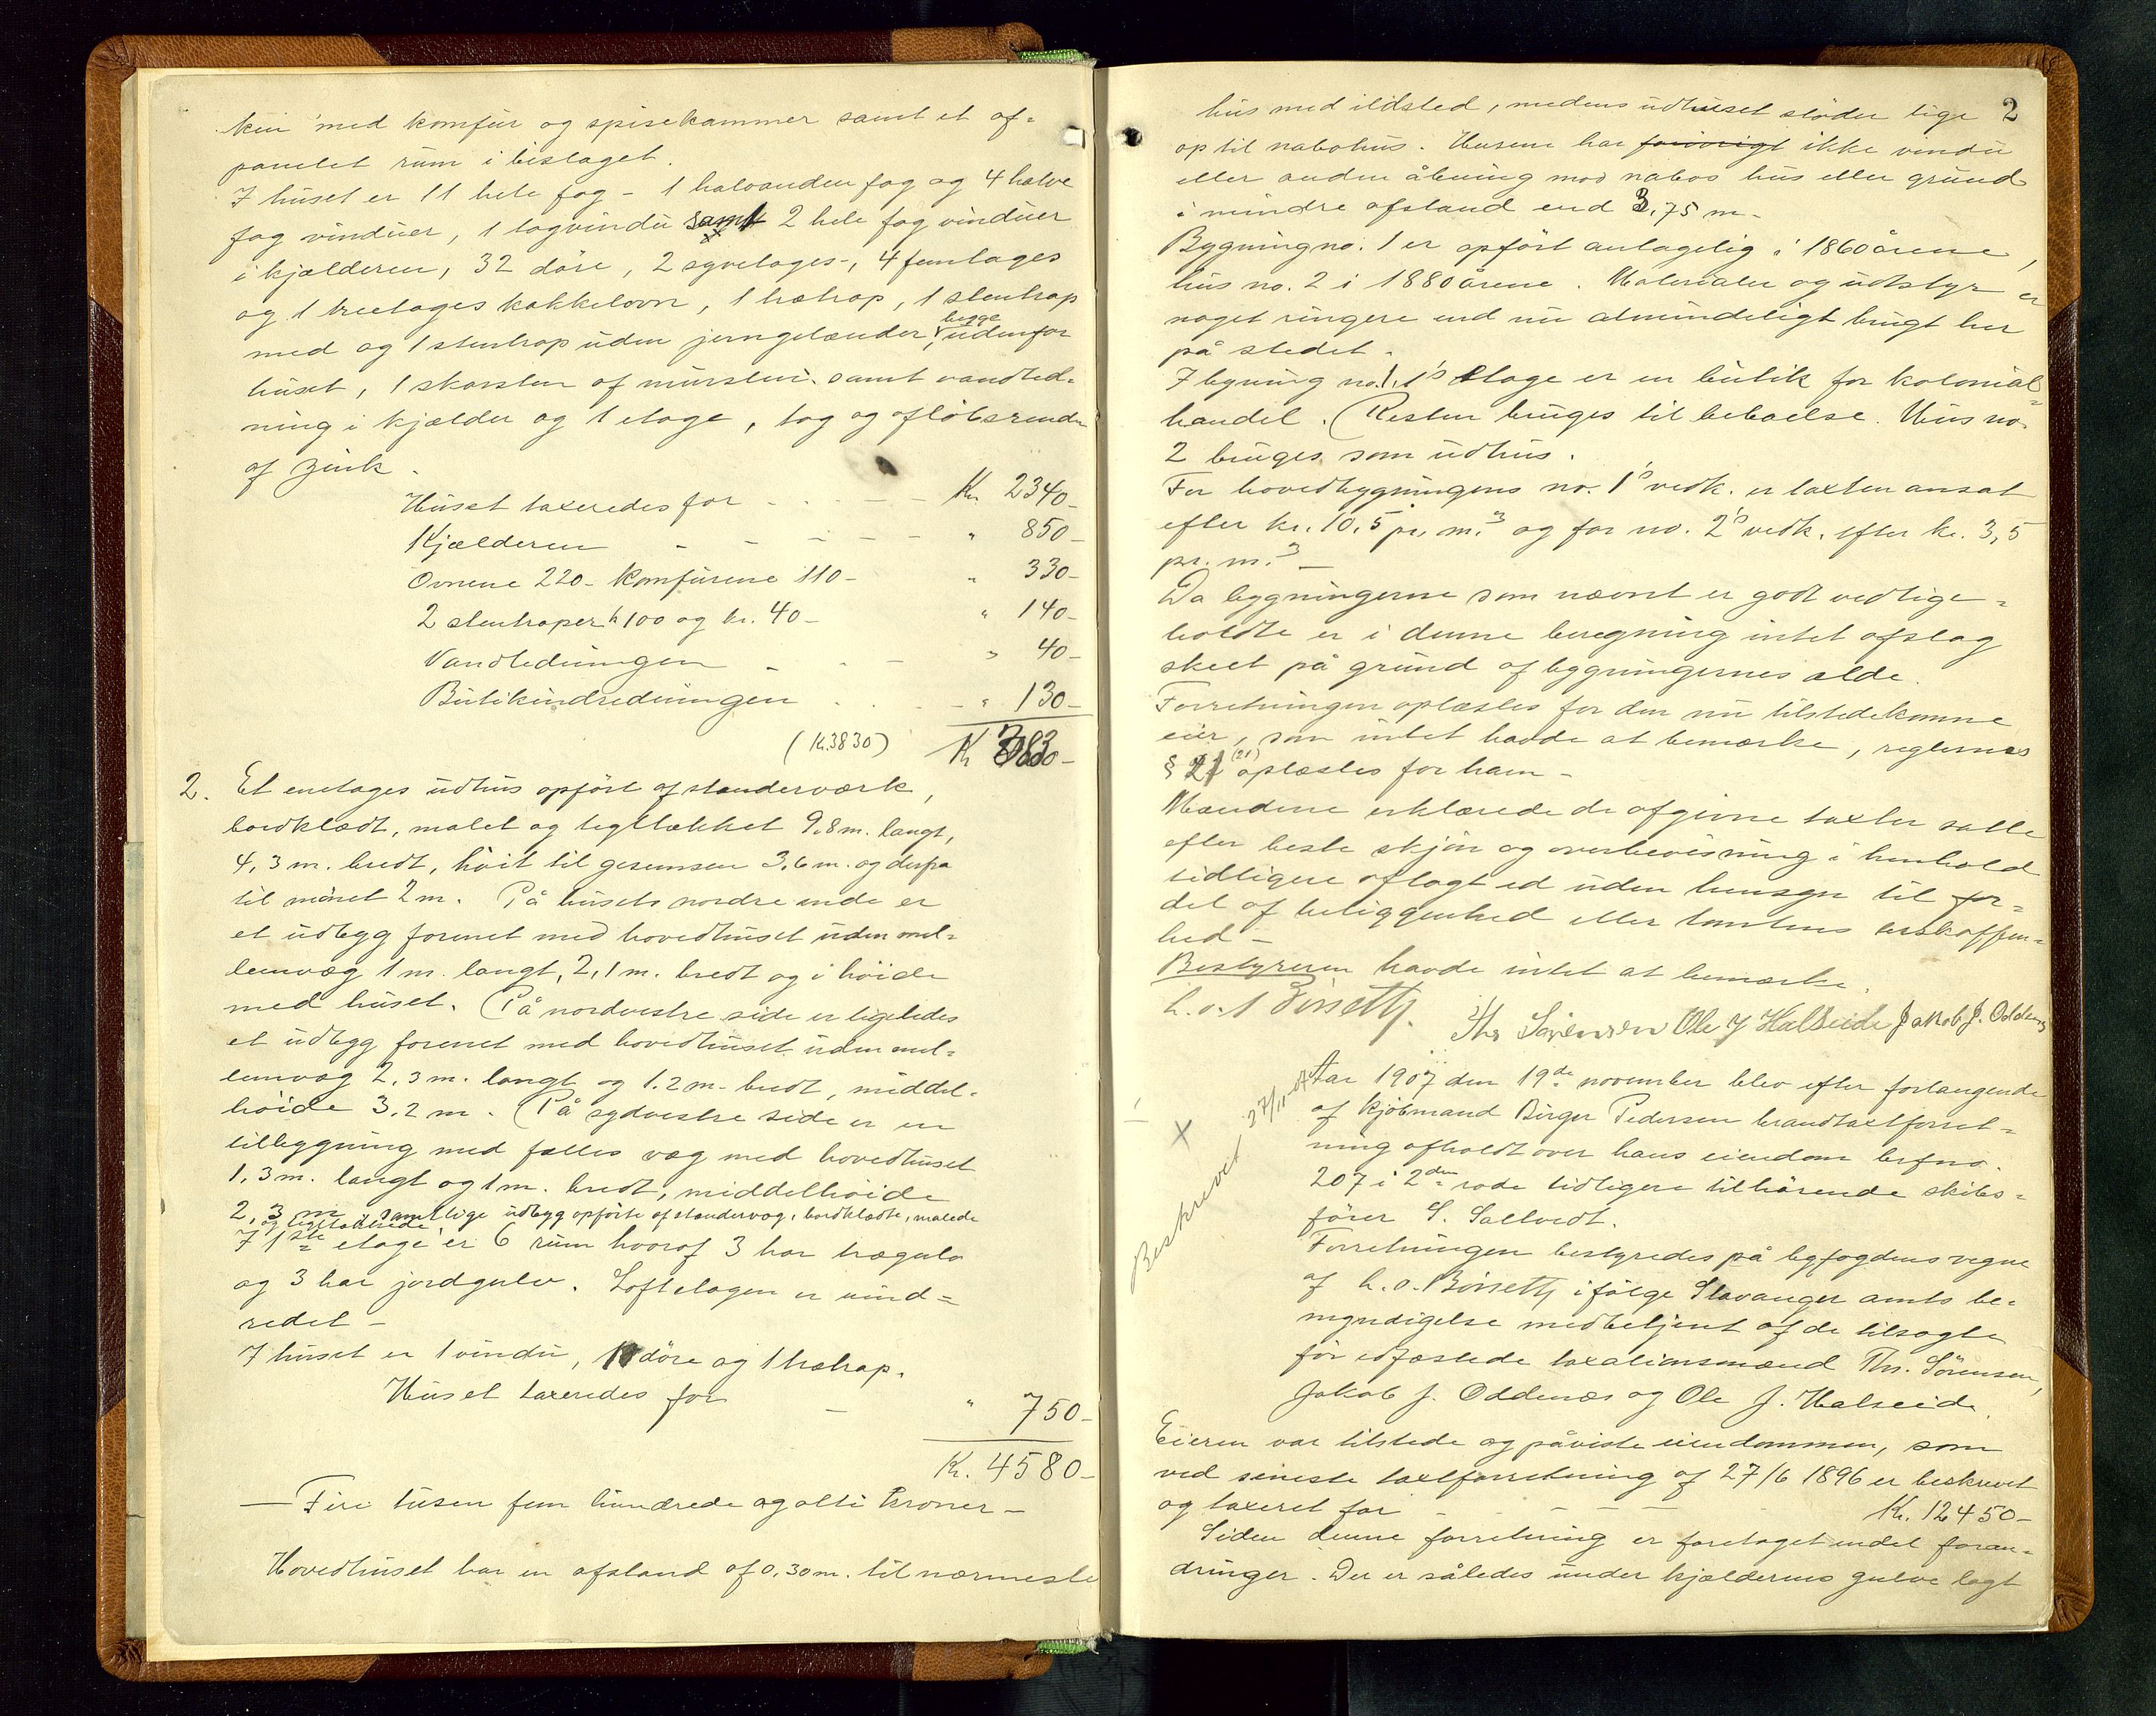 kin med komfur og spisekammer samt et af=
panelet rum i bislaget.
I huset er 11 hele fag - 1 halvanden fag og 4 halve
fag vinduer, 1 tagvindu samt 2 hele fag vinduer
i kjælderen, 32 döre, 2 syvetages-, 4 femtages
og 1 treetages kakkelovn, 1 trætrap, 1 stentrap
med og 1 stentrap uden jerngelænder, begge udenfor
huset, 1 skorsten af mursten samt vandled=
ning i kjælder og 1 etage, tag og aflöbsrender
af zink.
Huset taxeredes for - - - - Kr. 2340-
Kjælderen - - - - - " 850-
Ovnene 220- Komfurene 110- " 330-
2 stentraper kr 100 og kr. 40- " 140-
Vandledningen - - - " 40-
Butikindredningen . . . - " 130-
(Kr. 3830) Kr 3830-
2. Et enetages udhus opfört af standerværk,
bordklædt, malet og tegltækket 9.8 m. langt,
4,3 m. bredt, höit til gesemsen 3,6 m. og derfra
til mönet 2 m. På husets nordre ende er
et udbygg forenet med hovedhuset uden mel=
lemvæg 1 m. langt, 2,1 m. bredt og i höide
med huset. På nordvestre side er ligeledes
et udbygg forenet med hovedhuset uden mel=
lemvæg 2,3 m. langt og 1.2 m. bredt, middel-
höide 3,2 m. På sydvestre side er en
tilbygning med fælles væg med hovedhuset
1,3 m. langt og 1 m. bredt, middelhöide
2,3 m. samtlige udbyg opförte af standervæg, bordklædte, malede
og tegltækkede.
I 1ste etage er 6 rum hvoraf 3 har trægulv
og 3 har jordgulv. Loftetagen er uind=
redet -
I huset er 1 vindu, 10 döre og 1 trætrap.
Huset taxeredes for - " 750-
Kr. 4580-
— Fire tusen fem hundrede og otti kroner -
Hovedhuset har en afstand af 0,30 m. til nærmeste
2
hus med ildsted, medens udhuset stöder lige
op til nabohus. Husene har forövrigt ikke vindu
eller anden åbning mod nabos hus eller grund
i mindre afstand end 3,75 m.
Bygning no. 1 er opfört antagelig i 1860 årene,
hus no. 2 i 1880 årene. Materialer og udstyr er
noget ringere end nu almindeligt brugt her
på stedet.
I bygning no. 1's 1' etage er en butik for kolonial=
handel. Resten bruges til beboelse. Hus no.
2 bruges som udhus.
For hovedbygningens no. 1's vedk. er taxten ansat
efter kr. 10,5 pr. m.3 og for no. 2's vedk. efter kr. 3,5
pr. m.3 —
Da bygningerne som nævnt er godt vedlige=
holdte er i denne beregning intet afslag
skeet på grund af bygningernes alde.
Forretningen oplæstes for den nu tilstedekomne
eier, som intet havde at bemærke, reglernes
§ 21 (21) oplæstes for ham -
Mændene erklærede de afgivne taxter satte
efter beste skjön og overbevisning i henhold
tidligere aflagt ed uden hensyn til for=
del af beliggenhed eller tomtens beskaffen=
hed -
Bestyreren havde intet at bemærke.
Ths Sörensen Ole J Halseide Jakob J. Oddenæs
Beskrevet 27/11-07
+
Aar 1907 den 19de november blev efter forlangende
af kjöbmand Birger Pedersen brandtaxtforret=
ning afholdt over hans eiendom brfno.
207 i 2den rode tidligere tilhörende skibs=
förer S. Saltvedt.
Forretningen bestyredes på byfogdens vegne
af ifölge Stavanger amts be=
myndigelse medbetjent af de tilsagte
för edfæstede taxationsmænd Ths. Sörensen,
Jakob J. Oddenæs og Ole J. Halseide.
Eieren var tilstede og påviste eiendommen, som
ved seneste taxtforretning af 27/6 1896 er beskrevet
og taxeret for - - - - Kr. 12450-
Siden denne forretning er foretaget endel foran=
dringer. Der er således under kjælderens gulve lagt